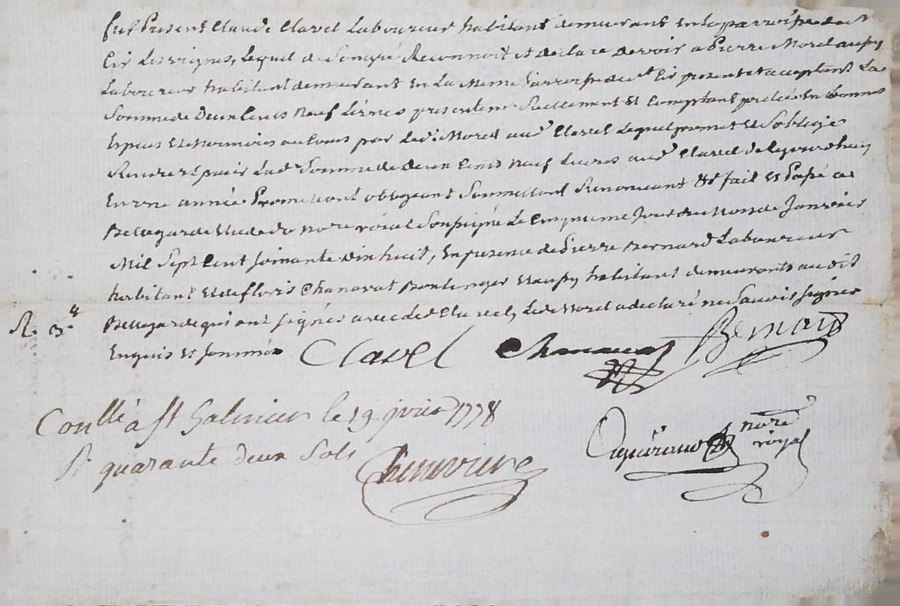 fut Present Claude Clavel Laboureur habitant demeurant En la parroisse de st
Cir Les vignes, Lequel de Son gré Reconnoit et declare devoir a Pierre Morel aussy
Laboureur habitant demeurant En La Meme Parroisse de st Cir present et acceptant La
Somme de Deux Cents Neuf Livres presentem Reellement et Comptant pretée En bonnes
Espèces et Monnoies au Cours par Ledt Morel aud Clavel Lequel promet et S'oblige
Rendre et paier Lad Somme de deux Cents Neuf Livres aud de Ce jourdhuy
En une année Promettant obligeant Soumettant Renoncant &c fait et Passé a
Bellegarde Etude do Nore roial Soussigné Le Cinquieme Jour du Mois de Janvier
Mil Sept Cent Soixante dix huit, En presence de Pierre Bernard Laboureur
habitant et de floris Chanavat Boulenger et aussy habitant demeurants au dit
Bellegarde qui ont signé avec led Clavel, Led Morel a declaré ne Savoir signer
Enquis et Sommé
R. 3.
Clavel
Bernard
Conllé a st Galmier le 19 jvier 1778
R quarante deux Sols
nore
royal